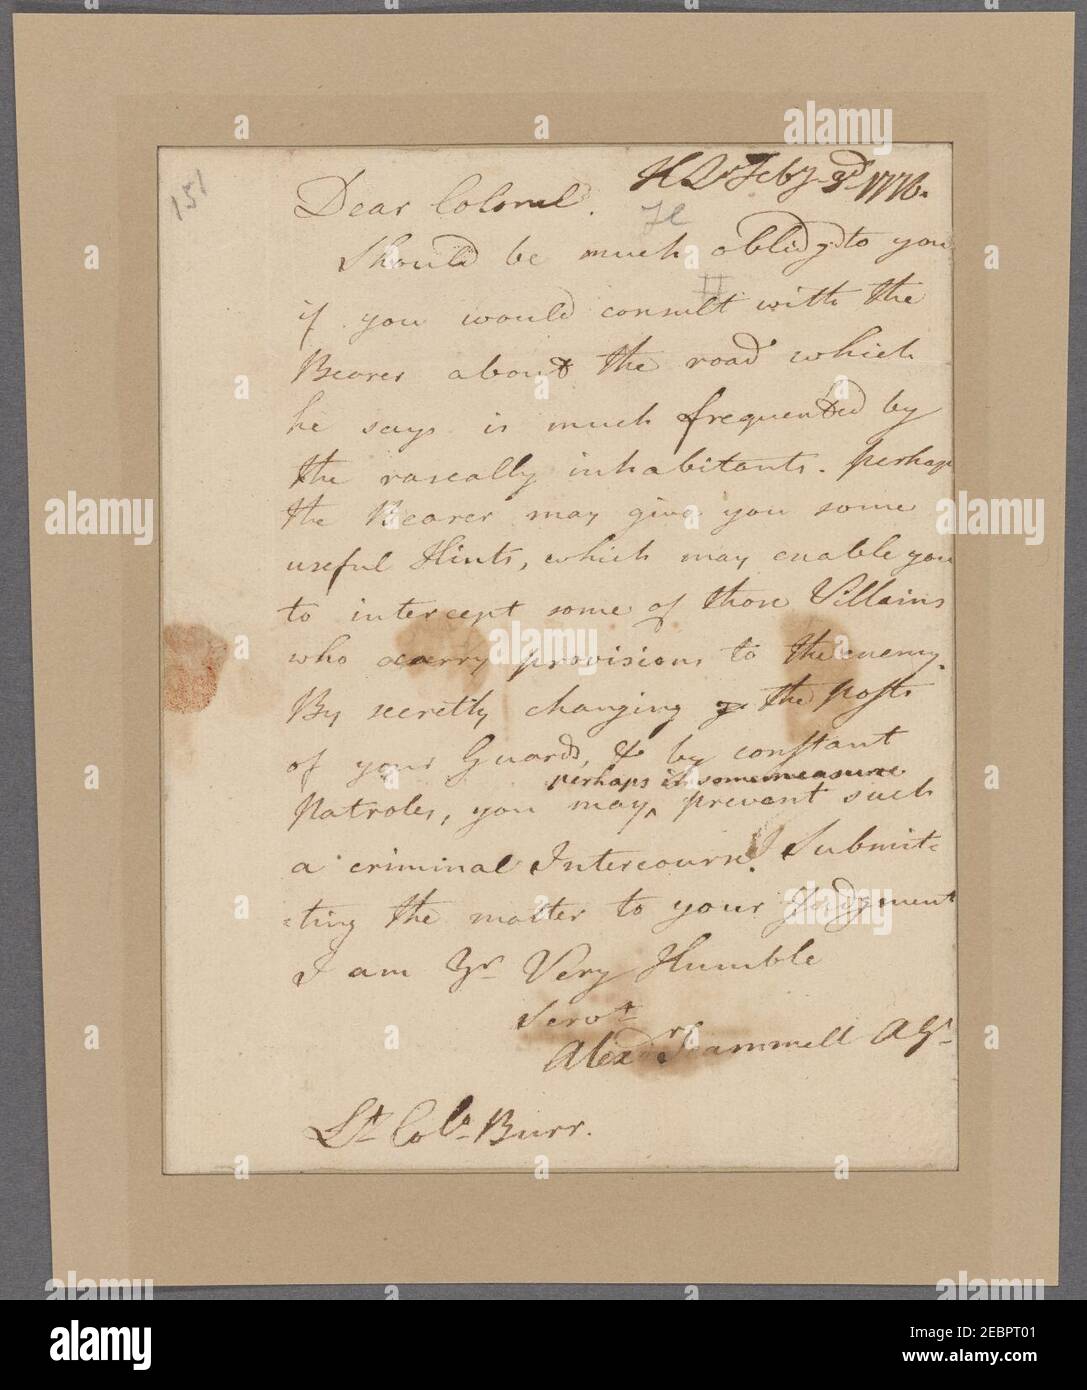 151
H Qrs Feby 3d 1778.
Dear Colonel.
Should be much oblidg'd to you
if you would consult with the
Bearer about the road which
he says is much frequented by
the rascally inhabitants. perhaps
the Bearer may give you some
useful Hints, which may enable you
to intercept some of those Villains
who carry provisions to the enemy.
By secretly changing the posts
of your Guards, & by constant
perhaps in some measure
Patroles, you may ^ prevent such
a criminal Intercourse. Submit-
-ting the matter to your Judgment
I am Yr Very Humble
Servt
Alexr Scammell AG
Lt. Col. Burr.
alamy
Image ID: 2EBPT01
www.alamy.com